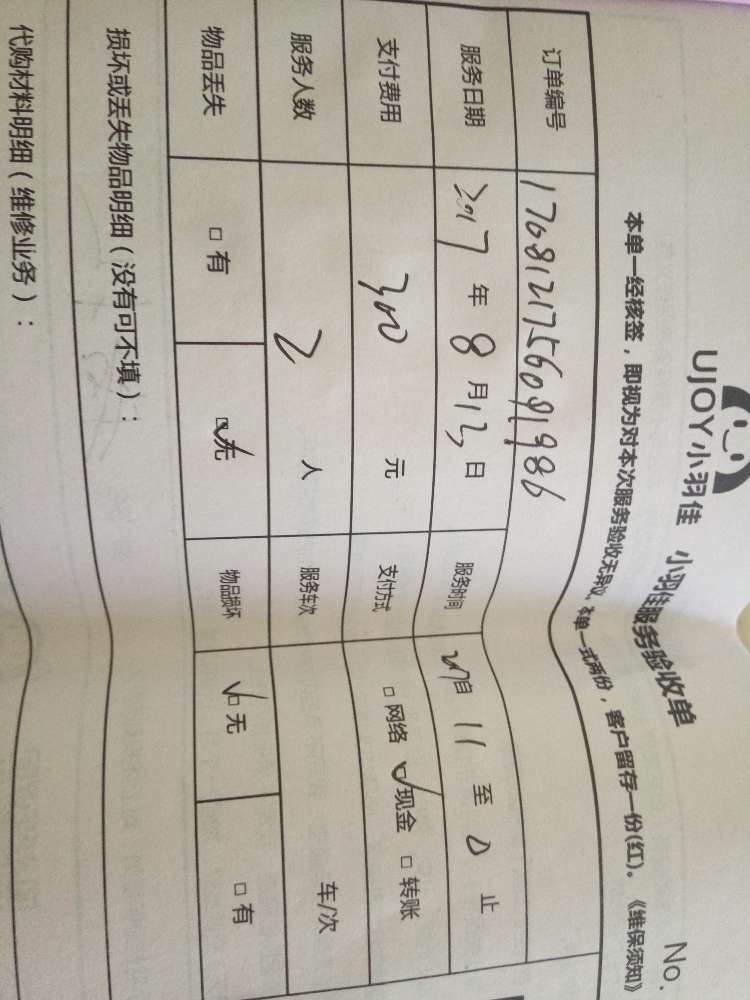 UJOY小羽佳 小羽佳服务验收单 No.
本单一经核签，即视为对本次服务验收无异议。本单一式两份，客户留存一份(红)。《维保须知》
订单编号
服务日期 2017 年 8 月 13 日 服务时间 自 11 至 止
支付费用 300 元 支付方式 □ 网络 ☑ 现金 □ 转账
服务人数 2 人 服务车次 车/次
物品丢失 □ 有 ☑ 无 物品损坏 ☑ 无 □ 有
损坏或丢失物品明细（没有可不填）：
代购材料明细（维修业务）：